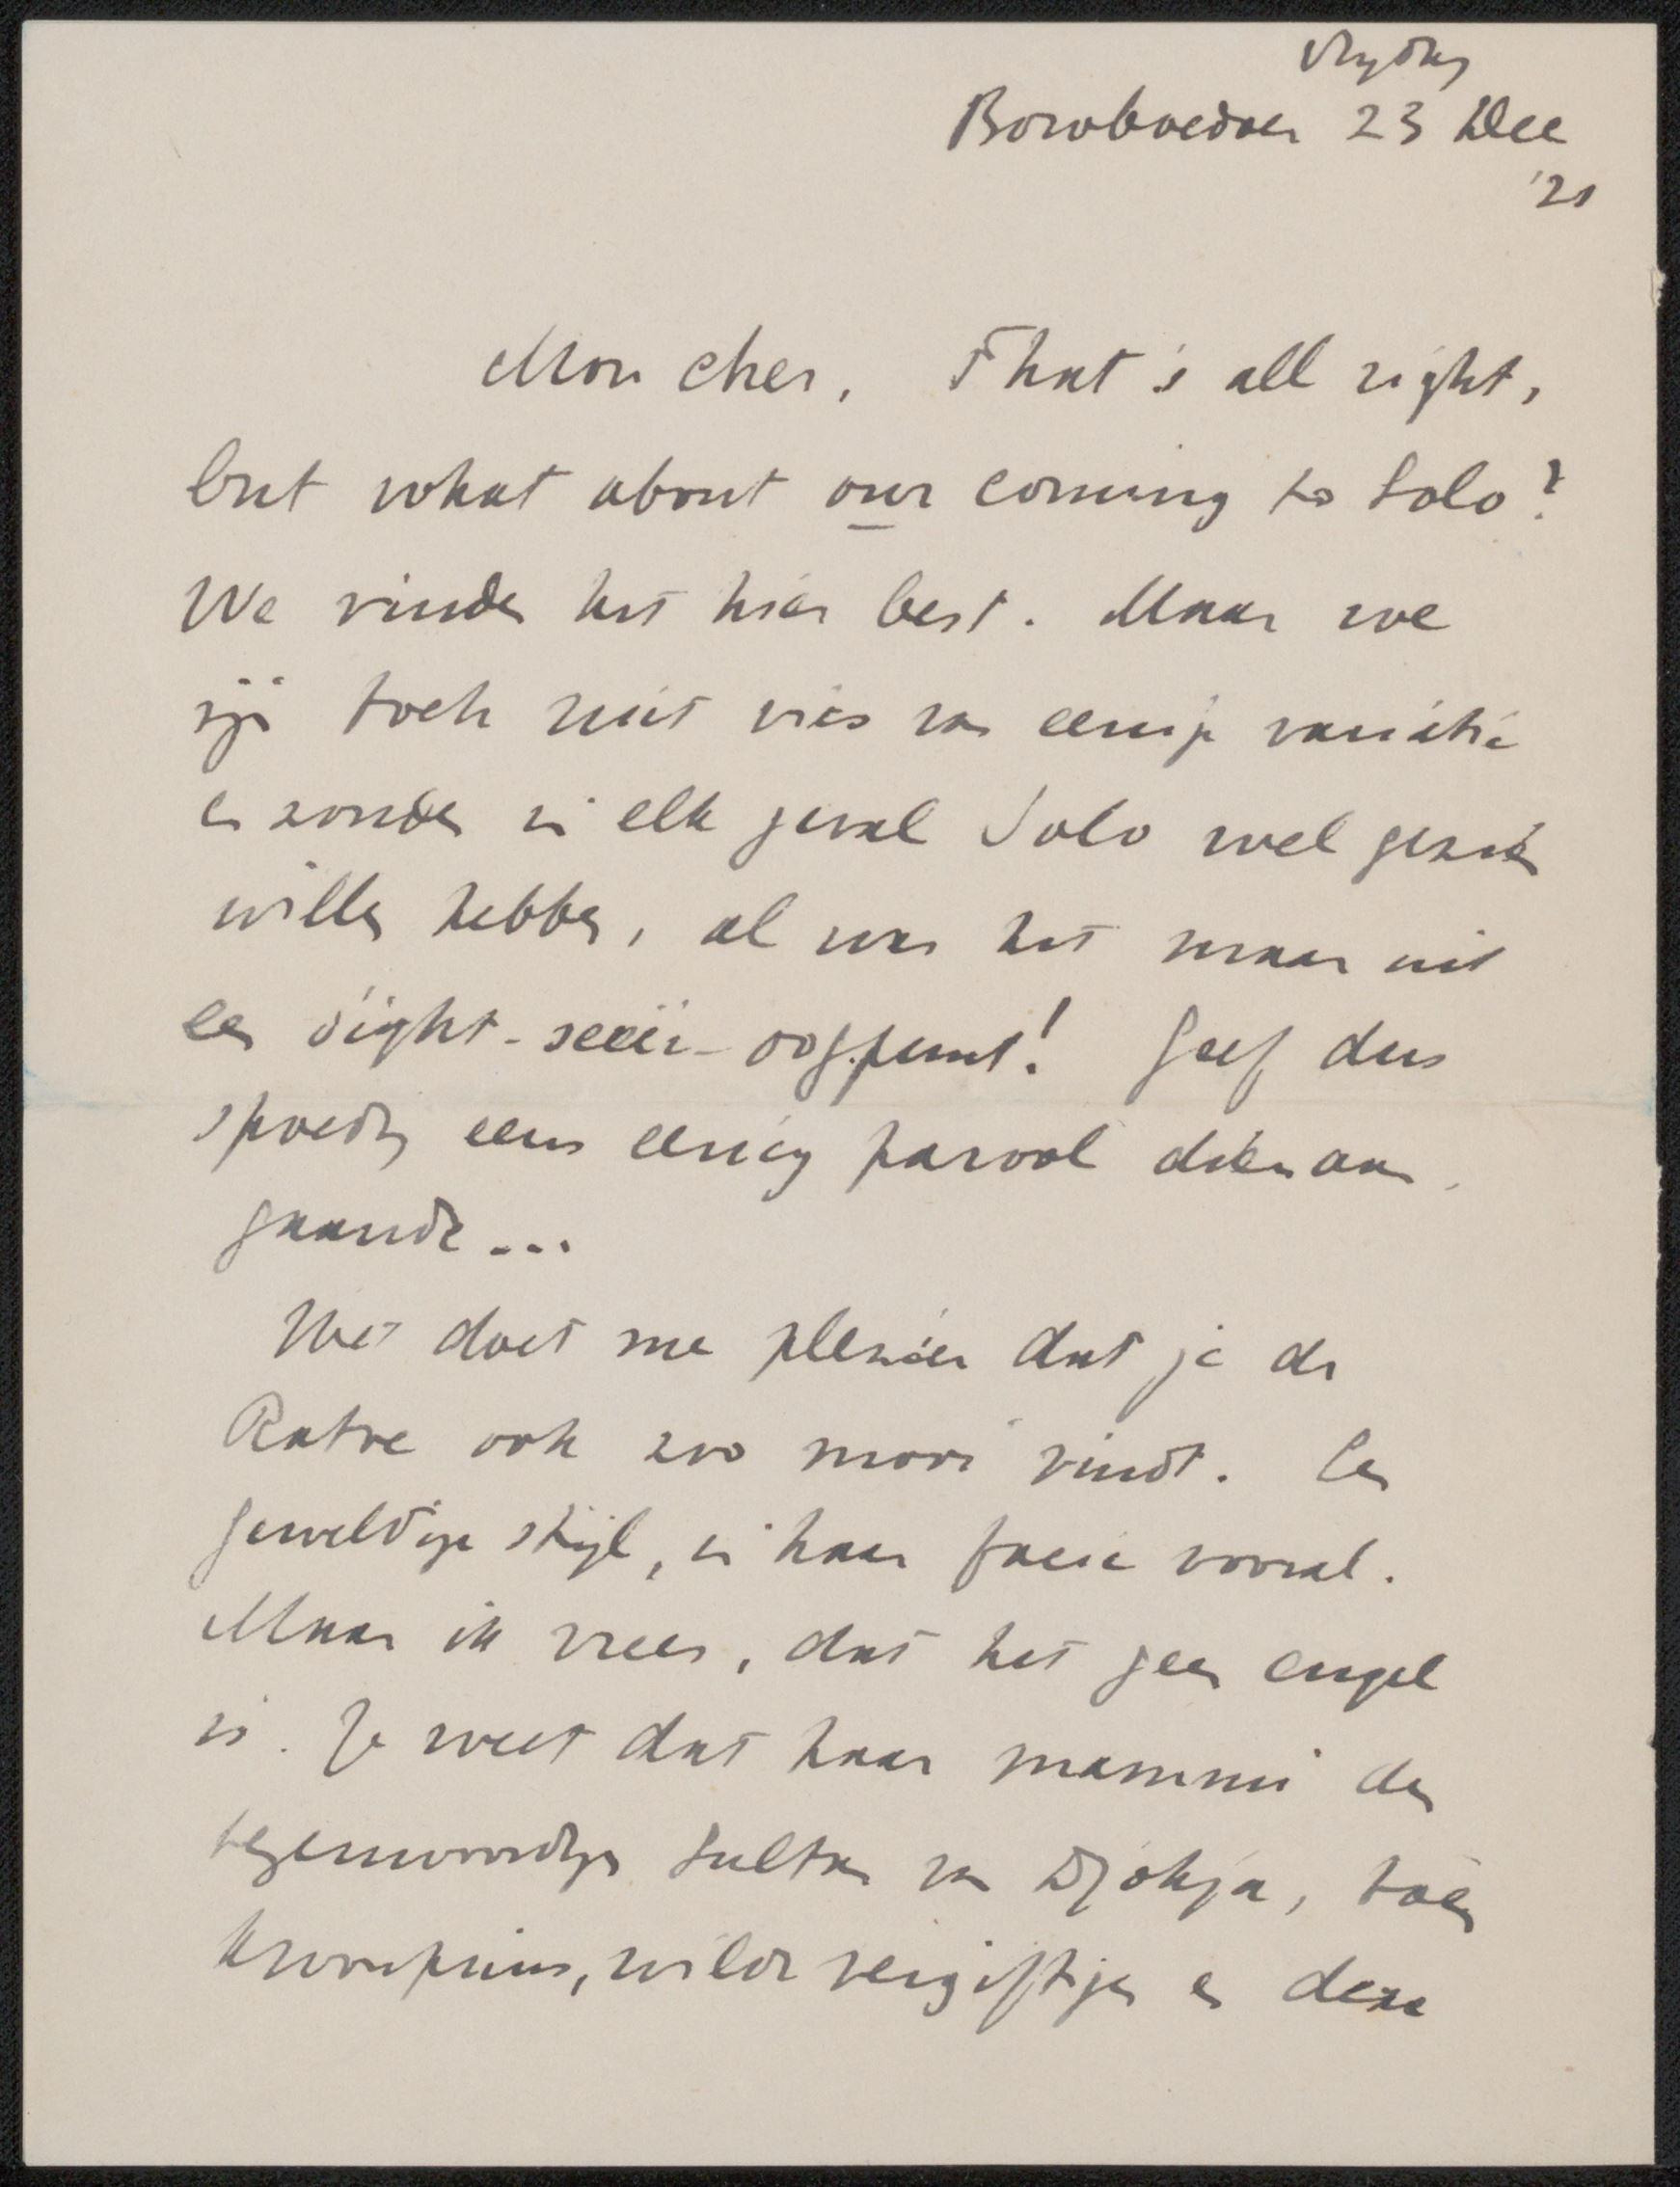 Vrydag
Boroboedoer 23 Dec
'21
Mon cher, That's all right,
but what about our coming to Solo?
We vinden het hier best. Maar we
zijn toch niet vies van eenige variatie
en zouden in elk geval Solo wel gezien
willen hebben, al was het maar uit
een sight-seein-oogpunt! Geef dus
spoedig eens eenig parool dienaan-
gaande...
Het doet me plezier dat je de
Ratoe ook zoo mooi vindt. Een
geweldige stijl, in haar facie vooral.
Maar ik vrees, dat het geen engel
is. Je weet dat haar mammie den
tegenwoordigen Sultan van Djokja, toen
kroonprins, wilde vergiftigen en deze